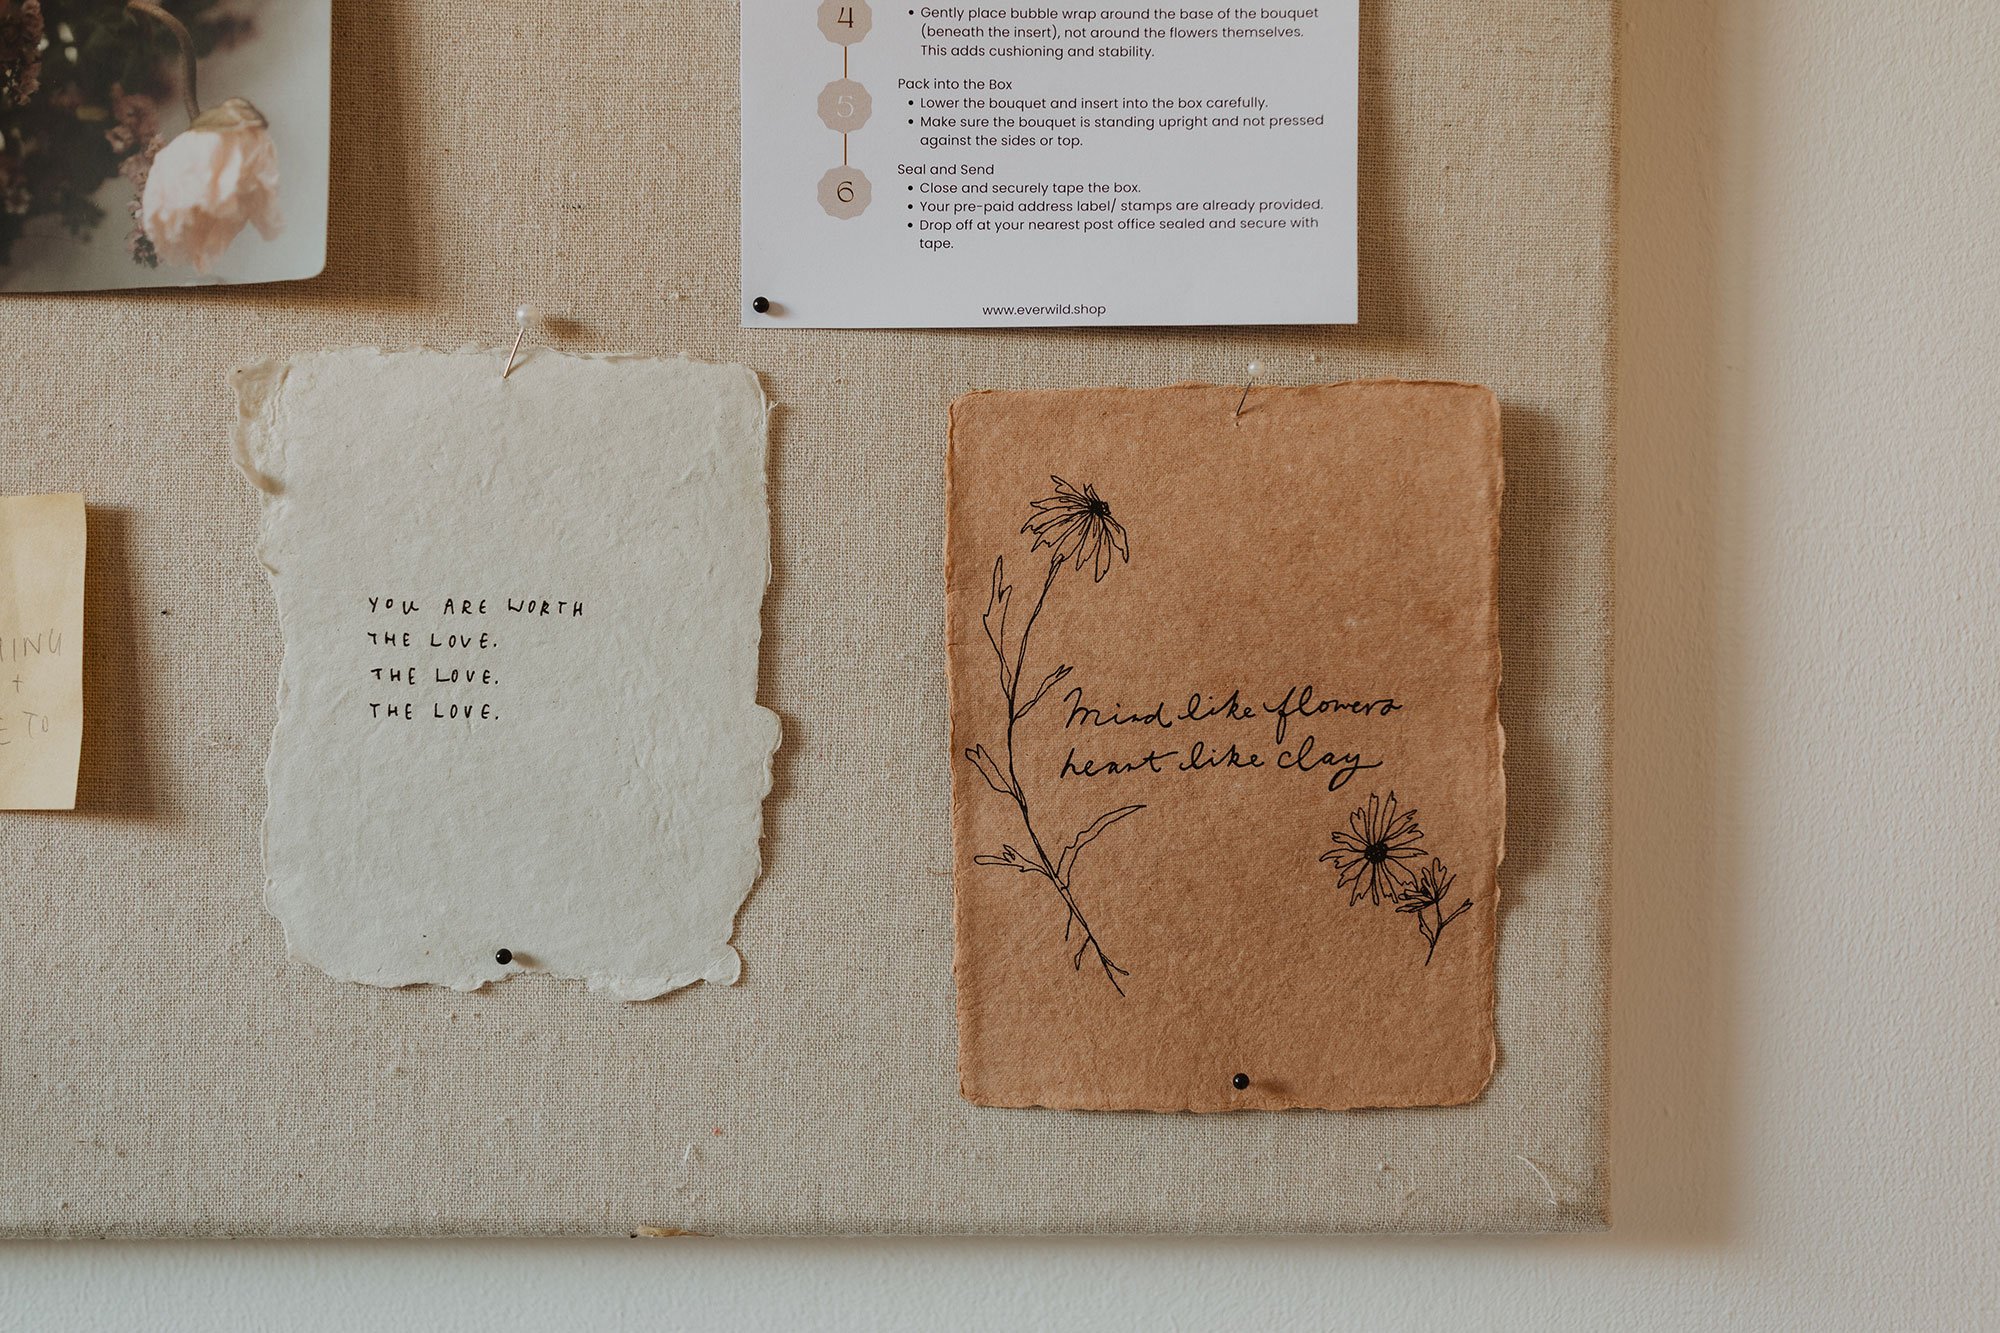 4
Gently place bubble wrap around the base of the bouquet
(beneath the insert), not around the flowers themselves.
This adds cushioning and stability.
5
Pack into the Box
Lower the bouquet and insert into the box carefully.
Make sure the bouquet is standing upright and not pressed
against the sides or top.
6
Seal and Send
Close and securely tape the box.
Your pre-paid address label/ stamps are already provided.
Drop off at your nearest post office sealed and secure with
tape.
www.everwild.shop
YOU ARE WORTH
THE LOVE.
THE LOVE.
THE LOVE.
Mind like flowers
heart like clay
+
TO